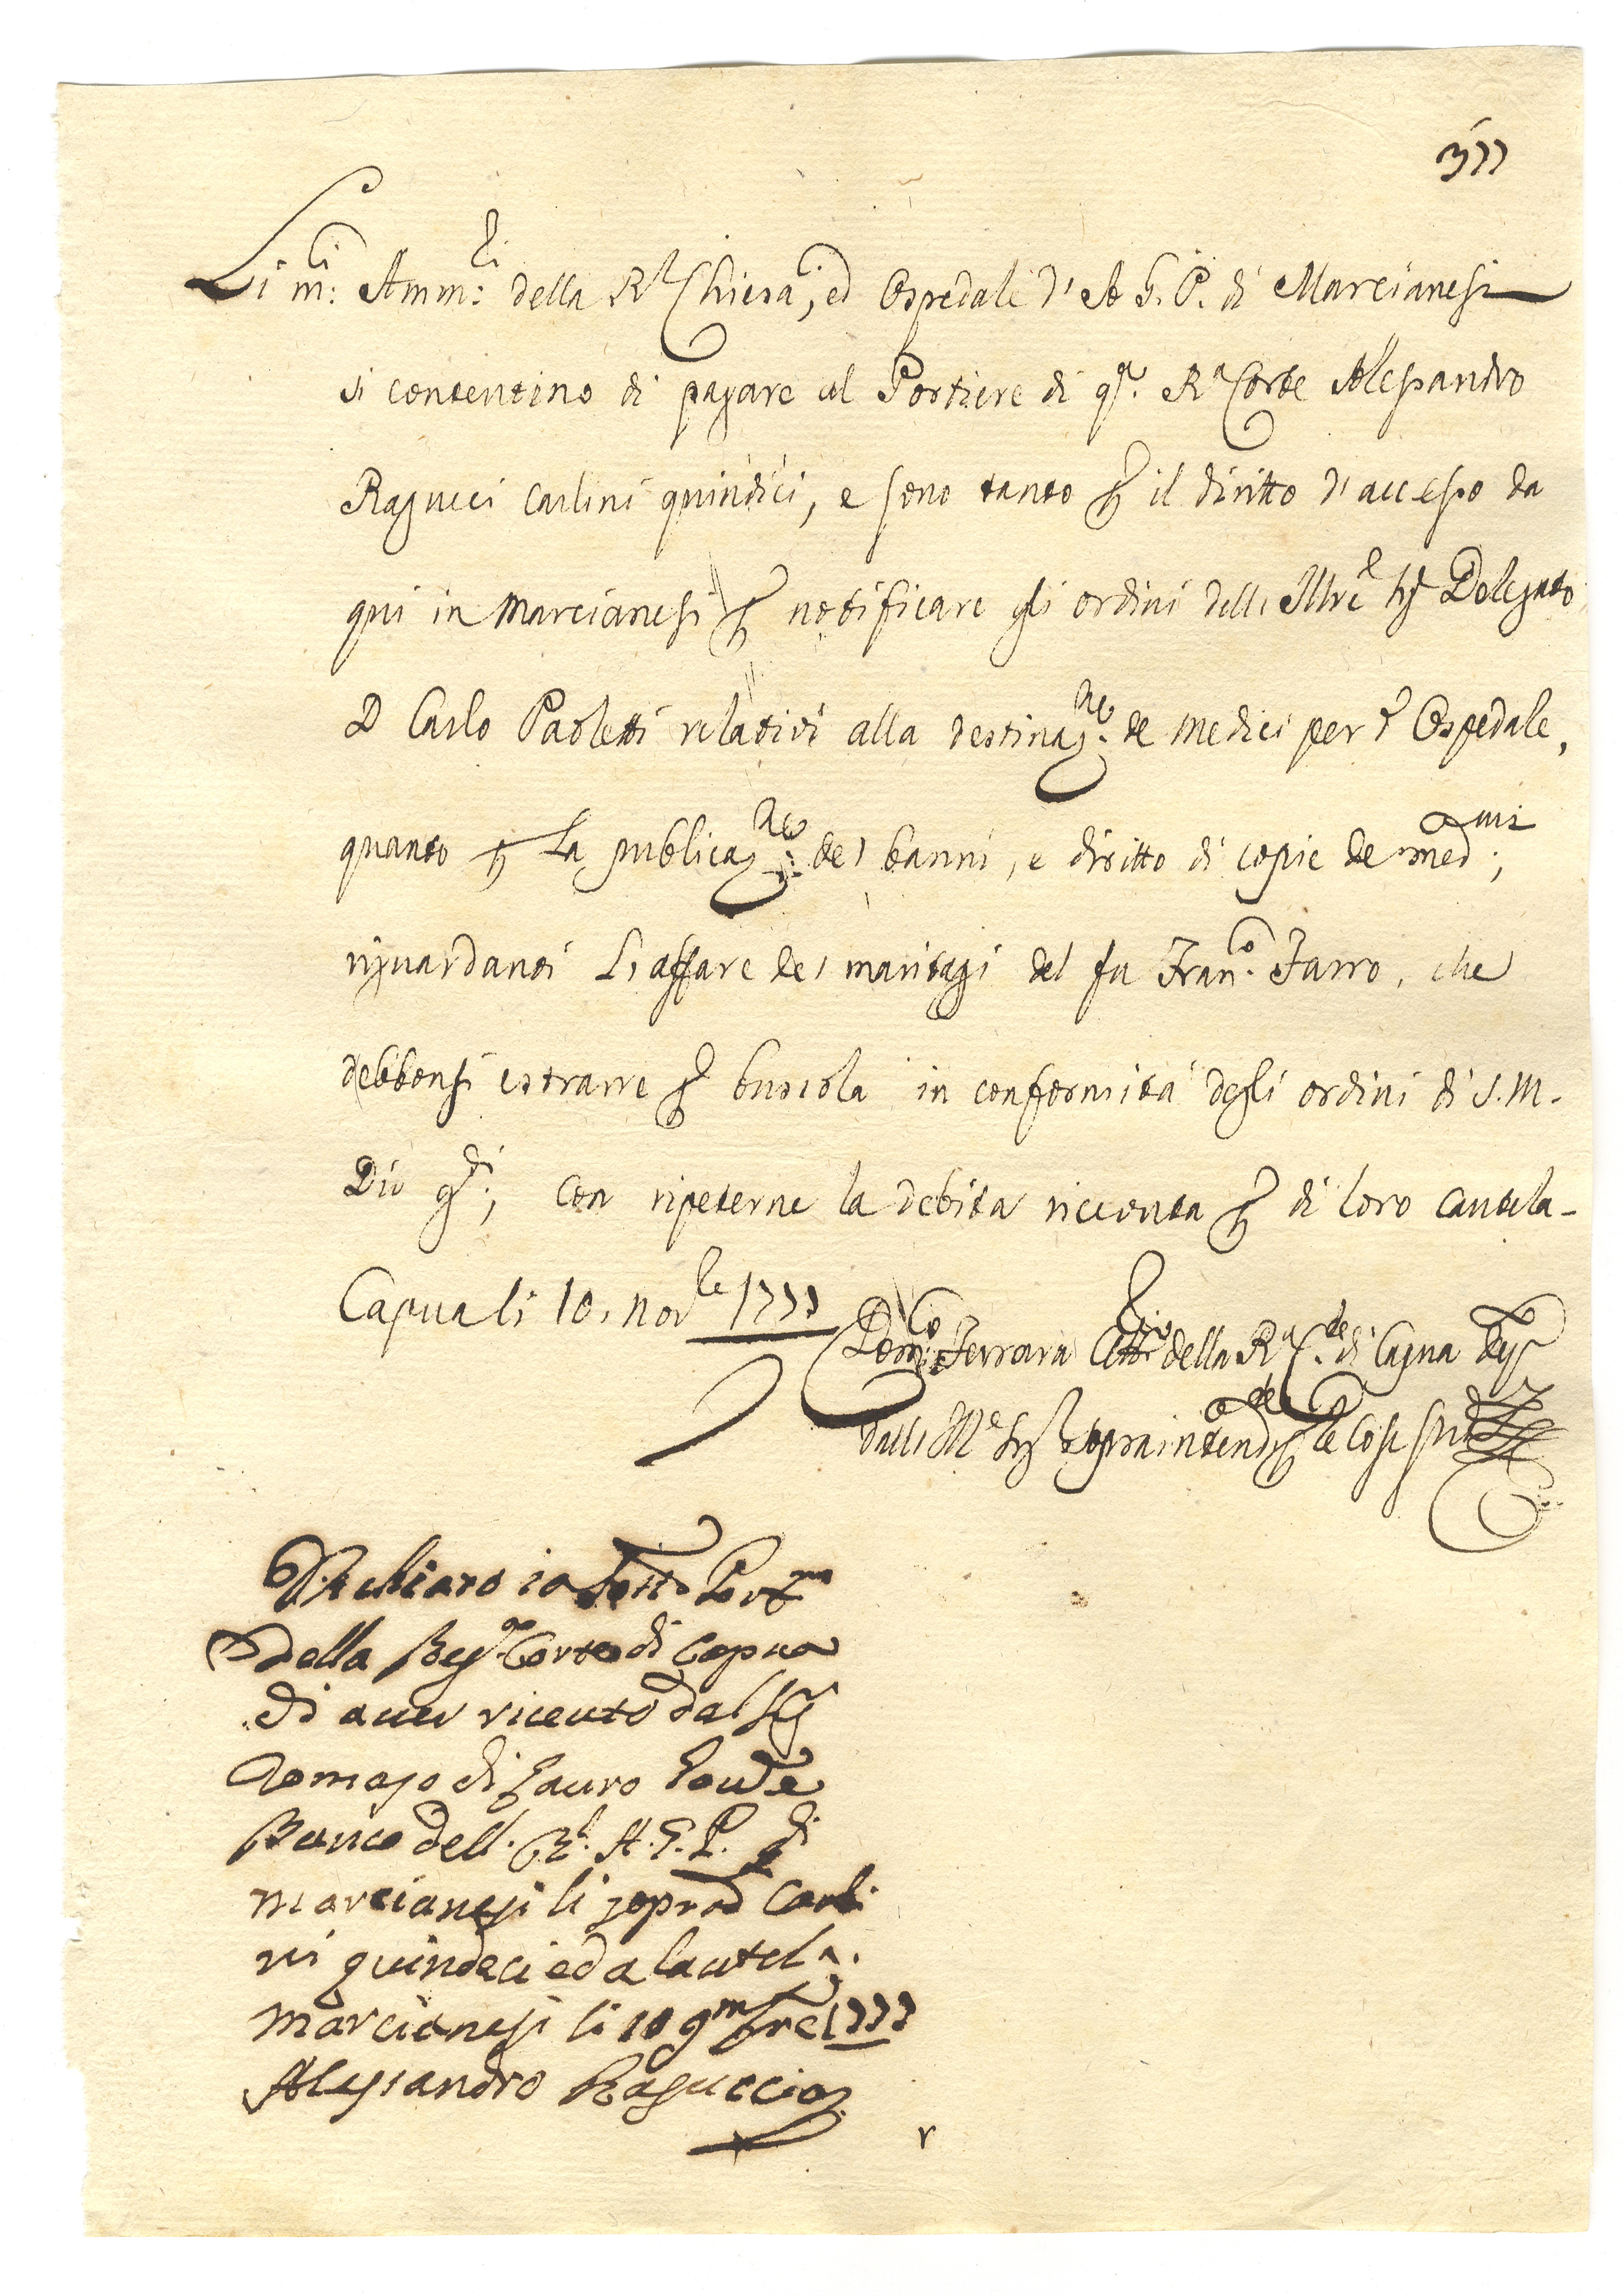 377
Li m:ci Amm:ri della Rl Chiesa, ed Ospedale d' A. G. P. di Marcianesi
si contentino di pagare al Portiere di q.a Ra Corte Alessandro
Ragucci carlini quindici, e sono tanto per il diritto d'accesso da
qui in Marcianesi per notificare gli ordini dell' Illre Sig Delegato
D Carlo Paoletti relativi alla destinaz.ne de Medici per d.o Ospedale,
quanto per la publicaz:ne de' banni, e diritto di copie de med:mi
riguardanti l'affare de' maritagi del fu Fran.co Farro, che
debbonsi estrarre per bussola in conformità degli ordini di S.M.
Dio g.di; con ripeterne la debita ricevuta per di loro cautela -
Capua li 10. Nov.bre 1777
Dom:co Ferrara Att.rio della Ra C.te di Capua
dall' Ille Sig Sopraintend.te per le cose
Dichiaro io sotto Port.ro
della Reg.a Corte di Capua
di aver riceuto dal Sig
Tomaso di Lauro
Banco dell. Rl. A. G. P. di
Marcianesi li soprad Carli
ni quindeci ed a cautela.
Marcianesi li 10 9mbre 1777
Alessandro Raguccio